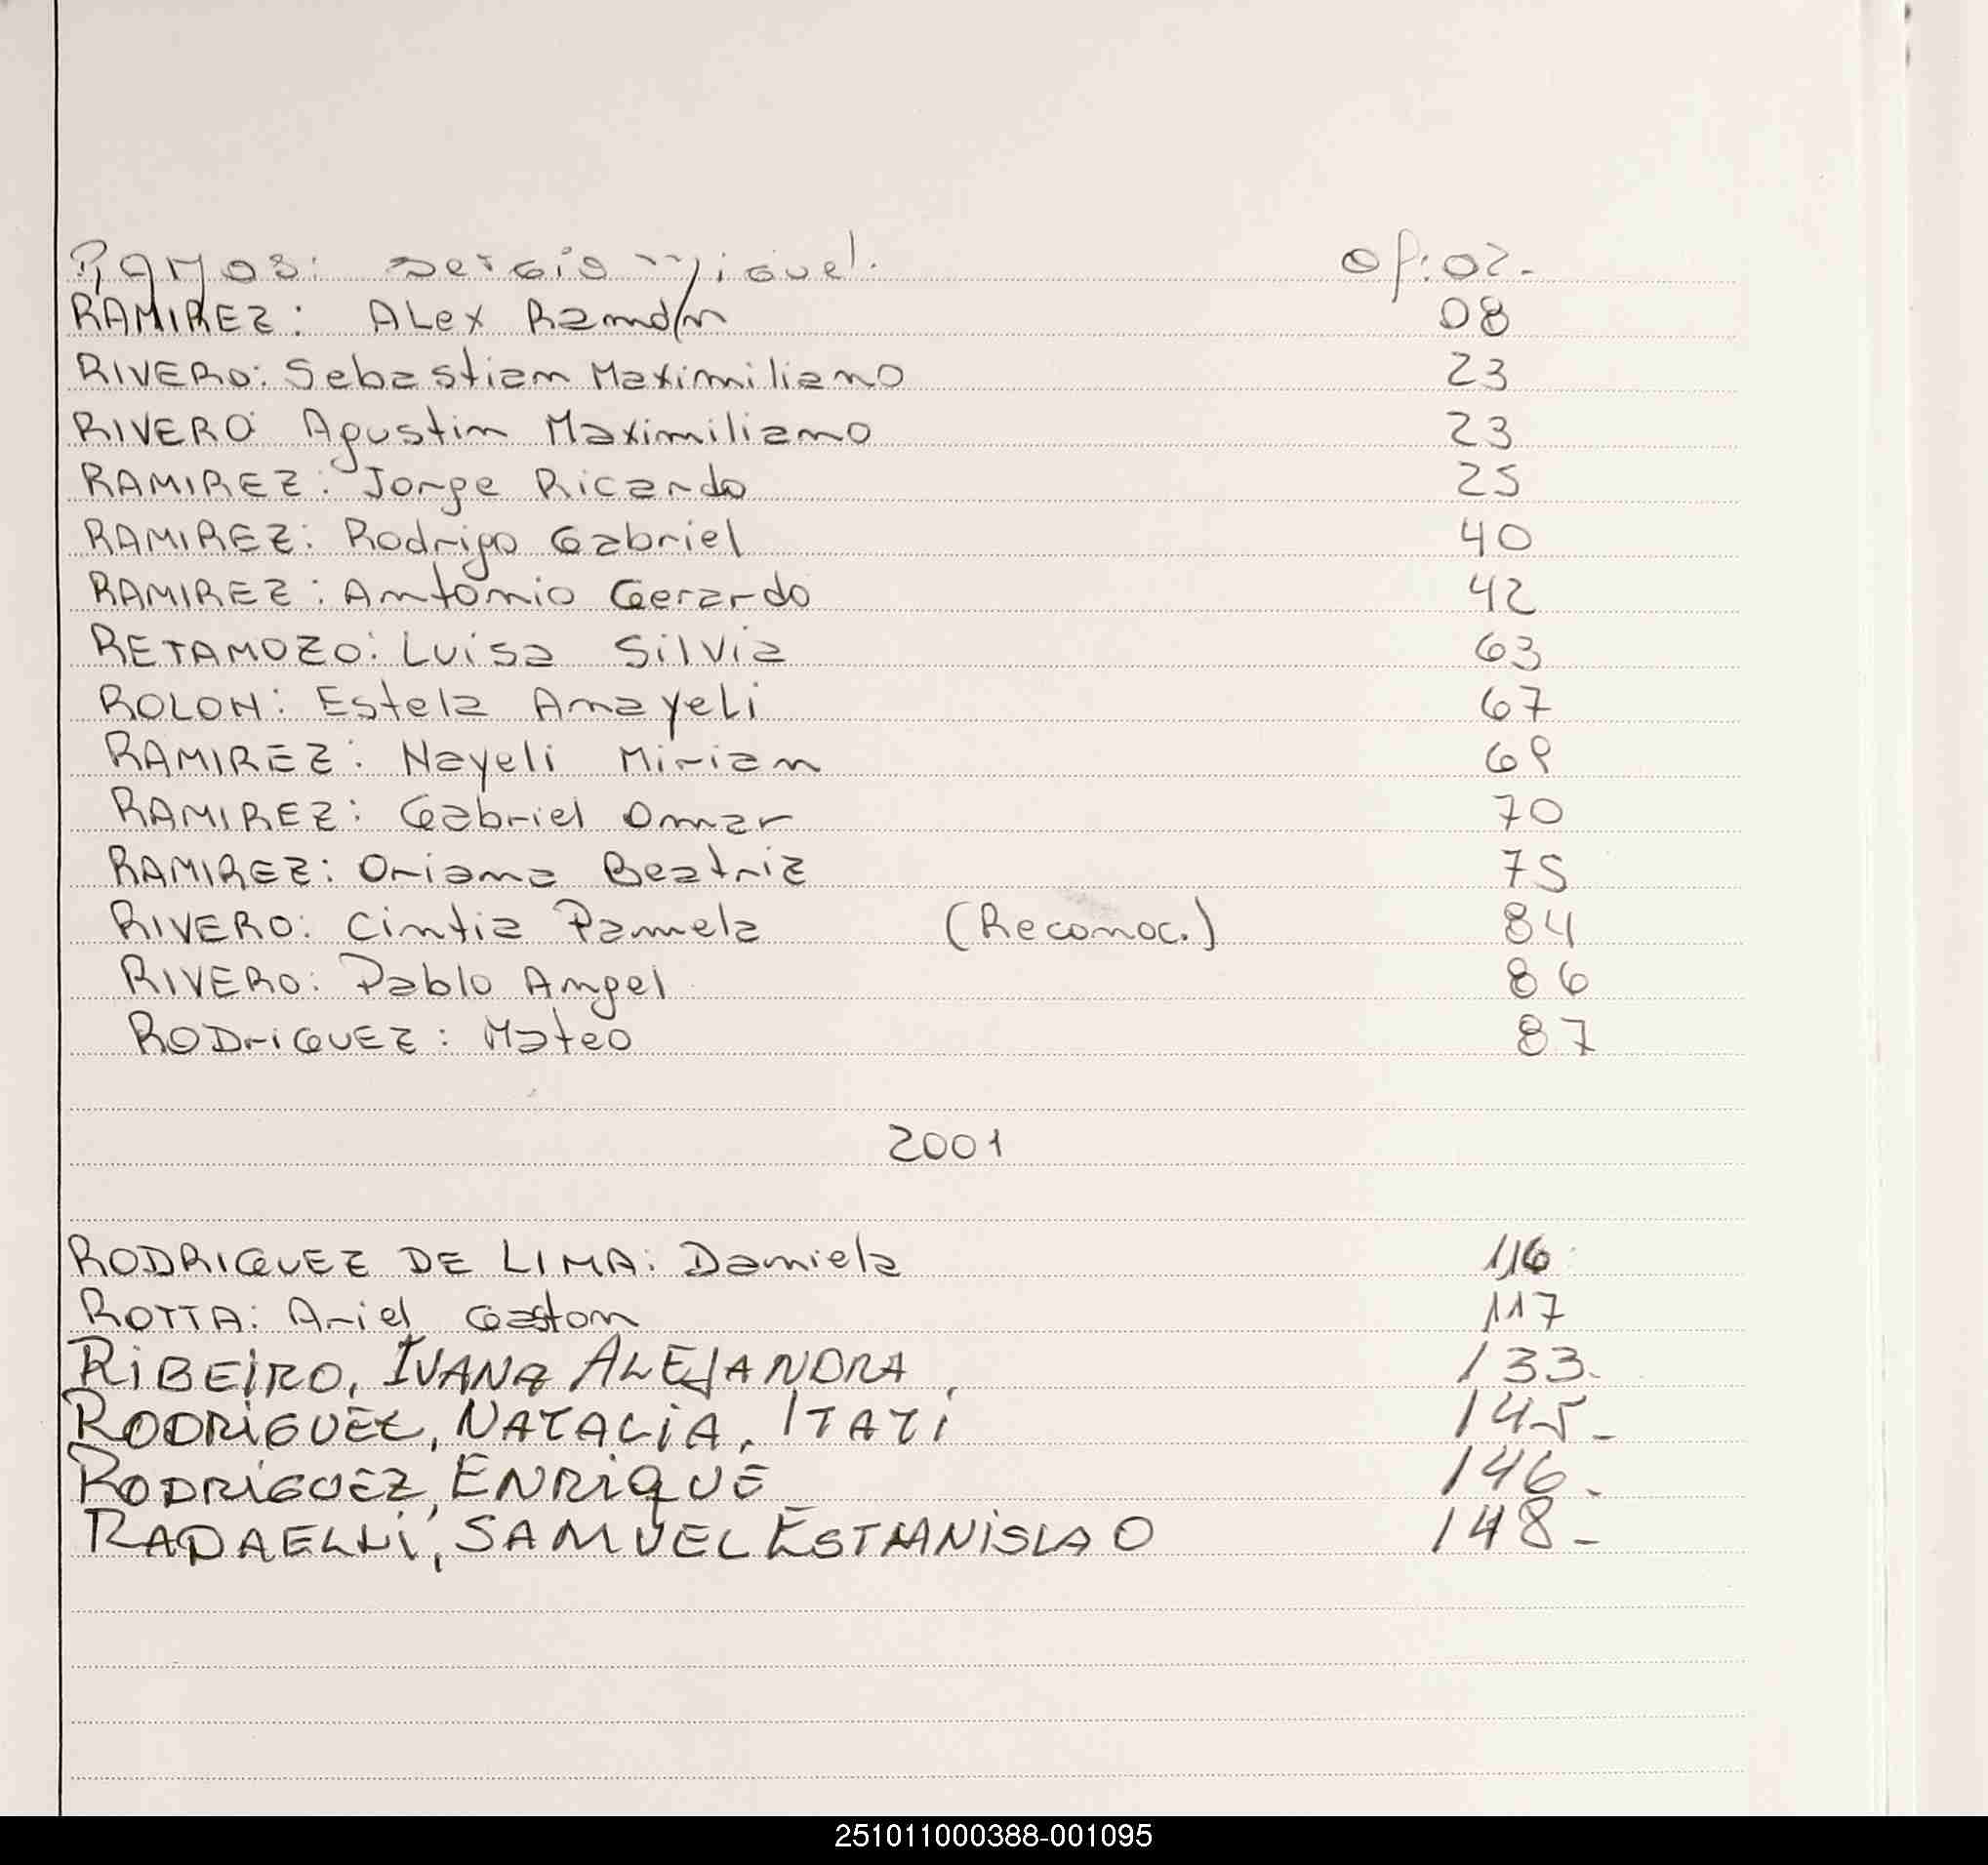 Ramos: Sergio Miguel. of: 02.-
RAMIREZ: ALex Ramón 08
RIVERO: Sebastian Maximiliano 23
RIVERO: Agustin Maximiliano 23
RAMIREZ: Jorge Ricardo 25
RAMIREZ: Rodrigo Gabriel 40
RAMIREZ: Antonio Gerardo 42
RETAMOZO: Luisa Silvia 63
ROLON: Estela Anayeli 67
RAMIREZ: Nayeli Mirian 69
RAMIREZ: Gabriel Omar 70
RAMIREZ: Oriana Beatriz 75
RIVERO: Cintia Pamela (Reconoc.) 84
RIVERO: Pablo Angel 86
RODriGUEZ: Mateo 87
2001
RODRIGUEZ DE LIMA: Daniela 116
ROTTA: Ariel Gaston 117
RiBEiRO, IVANa ALEJANDRA, 133-
RODRiGUEZ, NATALiA, ITATi 145-
RODRiGUEZ, ENRiQUE 146-
RADAELLi, SAMUEL ESTANiSLAO 148-
251011000388-001095